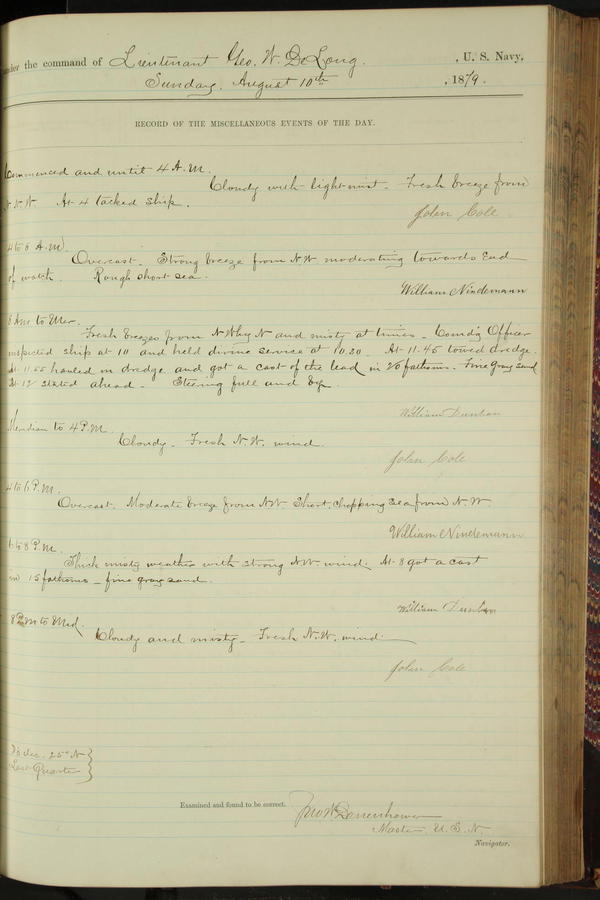 under the command of Lieutenant Geo. W. De Long. , U. S. Navy,
Sunday, August 10th , 1879.
RECORD OF THE MISCELLANEOUS EVENTS OF THE DAY.
Commenced and until 4 A.M.
Cloudy with light mist. Fresh breeze from
N.N.W. At 4 tacked ship.
John Cole
4 to 8 A.M.
Overcast. Strong breeze from N.W. moderating towards end
of watch. Rough short sea.
William Nindemann
8 Am to Mer.
Fresh breezes from N.W. by N and misty at times. Comdg Officer
inspected ship at 10 and held divine service at 10.30. At 11.45 towed dredge.
At 11.55 hauled in dredge and got a cast of the lead in 20 fathoms. Fine gray sand
At 12 stood ahead. Steering full and by.
William Dunbar
Meridian to 4 P.M.
Cloudy. Fresh N.W. wind.
John Cole
4 to 6 P.M.
Overcast. Moderate breeze from NW Short, chopping sea from N.W
William Nindemann
6 to 8 P.M.
Thick misty weather with strong N.W. wind. At 8 got a cast
in 15 fathoms – fine gray sand.
William Dunbar
8 P.m to Mid.
Cloudy and misty – Fresh N.W. wind.
John Cole
dec. 25° N
Last Quarter
Examined and found to be correct.
Jno W Danenhower
Master U. S. N.
Navigator.